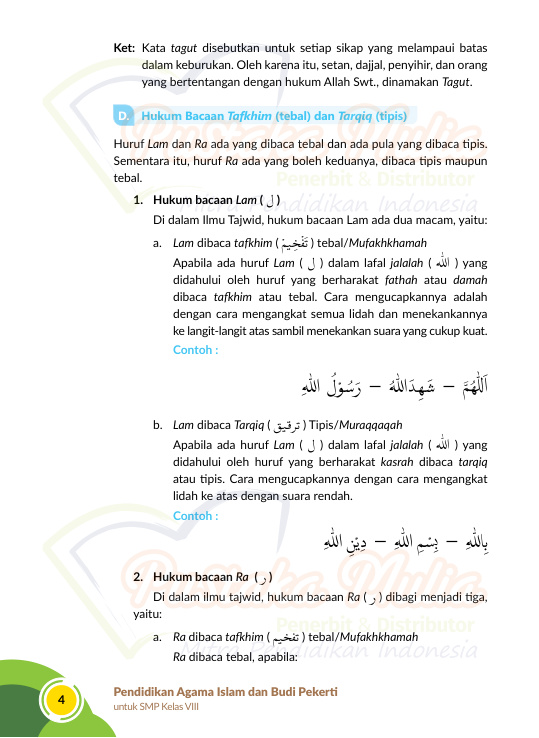 Ket: Kata tagut disebutkan untuk setiap sikap yang melampaui batas
dalam keburukan. Oleh karena itu, setan, dajjal, penyihir, dan orang
yang bertentangan dengan hukum Allah Swt., dinamakan Tagut.
D. Hukum Bacaan Tafkhim (tebal) dan Tarqiq (tipis)
Huruf Lam dan Ra ada yang dibaca tebal dan ada pula yang dibaca tipis.
Sementara itu, huruf Ra ada yang boleh keduanya, dibaca tipis maupun
tebal.
1. Hukum bacaan Lam ( ل )
Di dalam Ilmu Tajwid, hukum bacaan Lam ada dua macam, yaitu:
a. Lam dibaca tafkhim ( تَفْخِيمْ ) tebal/Mufakhkhamah
Apabila ada huruf Lam ( ل ) dalam lafal jalalah ( الله ) yang
didahului oleh huruf yang berharakat fathah atau damah
dibaca tafkhim atau tebal. Cara mengucapkannya adalah
dengan cara mengangkat semua lidah dan menekankannya
ke langit-langit atas sambil menekankan suara yang cukup kuat.
Contoh :
اَللّٰهُمَّ – شَهِدَاللّٰهُ – رَسُوْلُ اللّٰهِ
b. Lam dibaca Tarqiq ( ترقيق ) Tipis/Muraqqaqah
Apabila ada huruf Lam ( ل ) dalam lafal jalalah ( الله ) yang
didahului oleh huruf yang berharakat kasrah dibaca tarqiq
atau tipis. Cara mengucapkannya dengan cara mengangkat
lidah ke atas dengan suara rendah.
Contoh :
بِاللّٰهِ – بِسْمِ اللّٰهِ – دِيْنِ اللّٰهِ
2. Hukum bacaan Ra ( ر )
Di dalam ilmu tajwid, hukum bacaan Ra ( ر ) dibagi menjadi tiga,
yaitu:
a. Ra dibaca tafkhim ( تفخيم ) tebal/Mufakhkhamah
Ra dibaca tebal, apabila:
4
Pendidikan Agama Islam dan Budi Pekerti
untuk SMP Kelas VIII
Pustaka Mulia
Penerbit & Distributor
Mitra Pendidikan Indonesia
Pustaka Mulia
Penerbit & Distributor
Mitra Pendidikan Indonesia